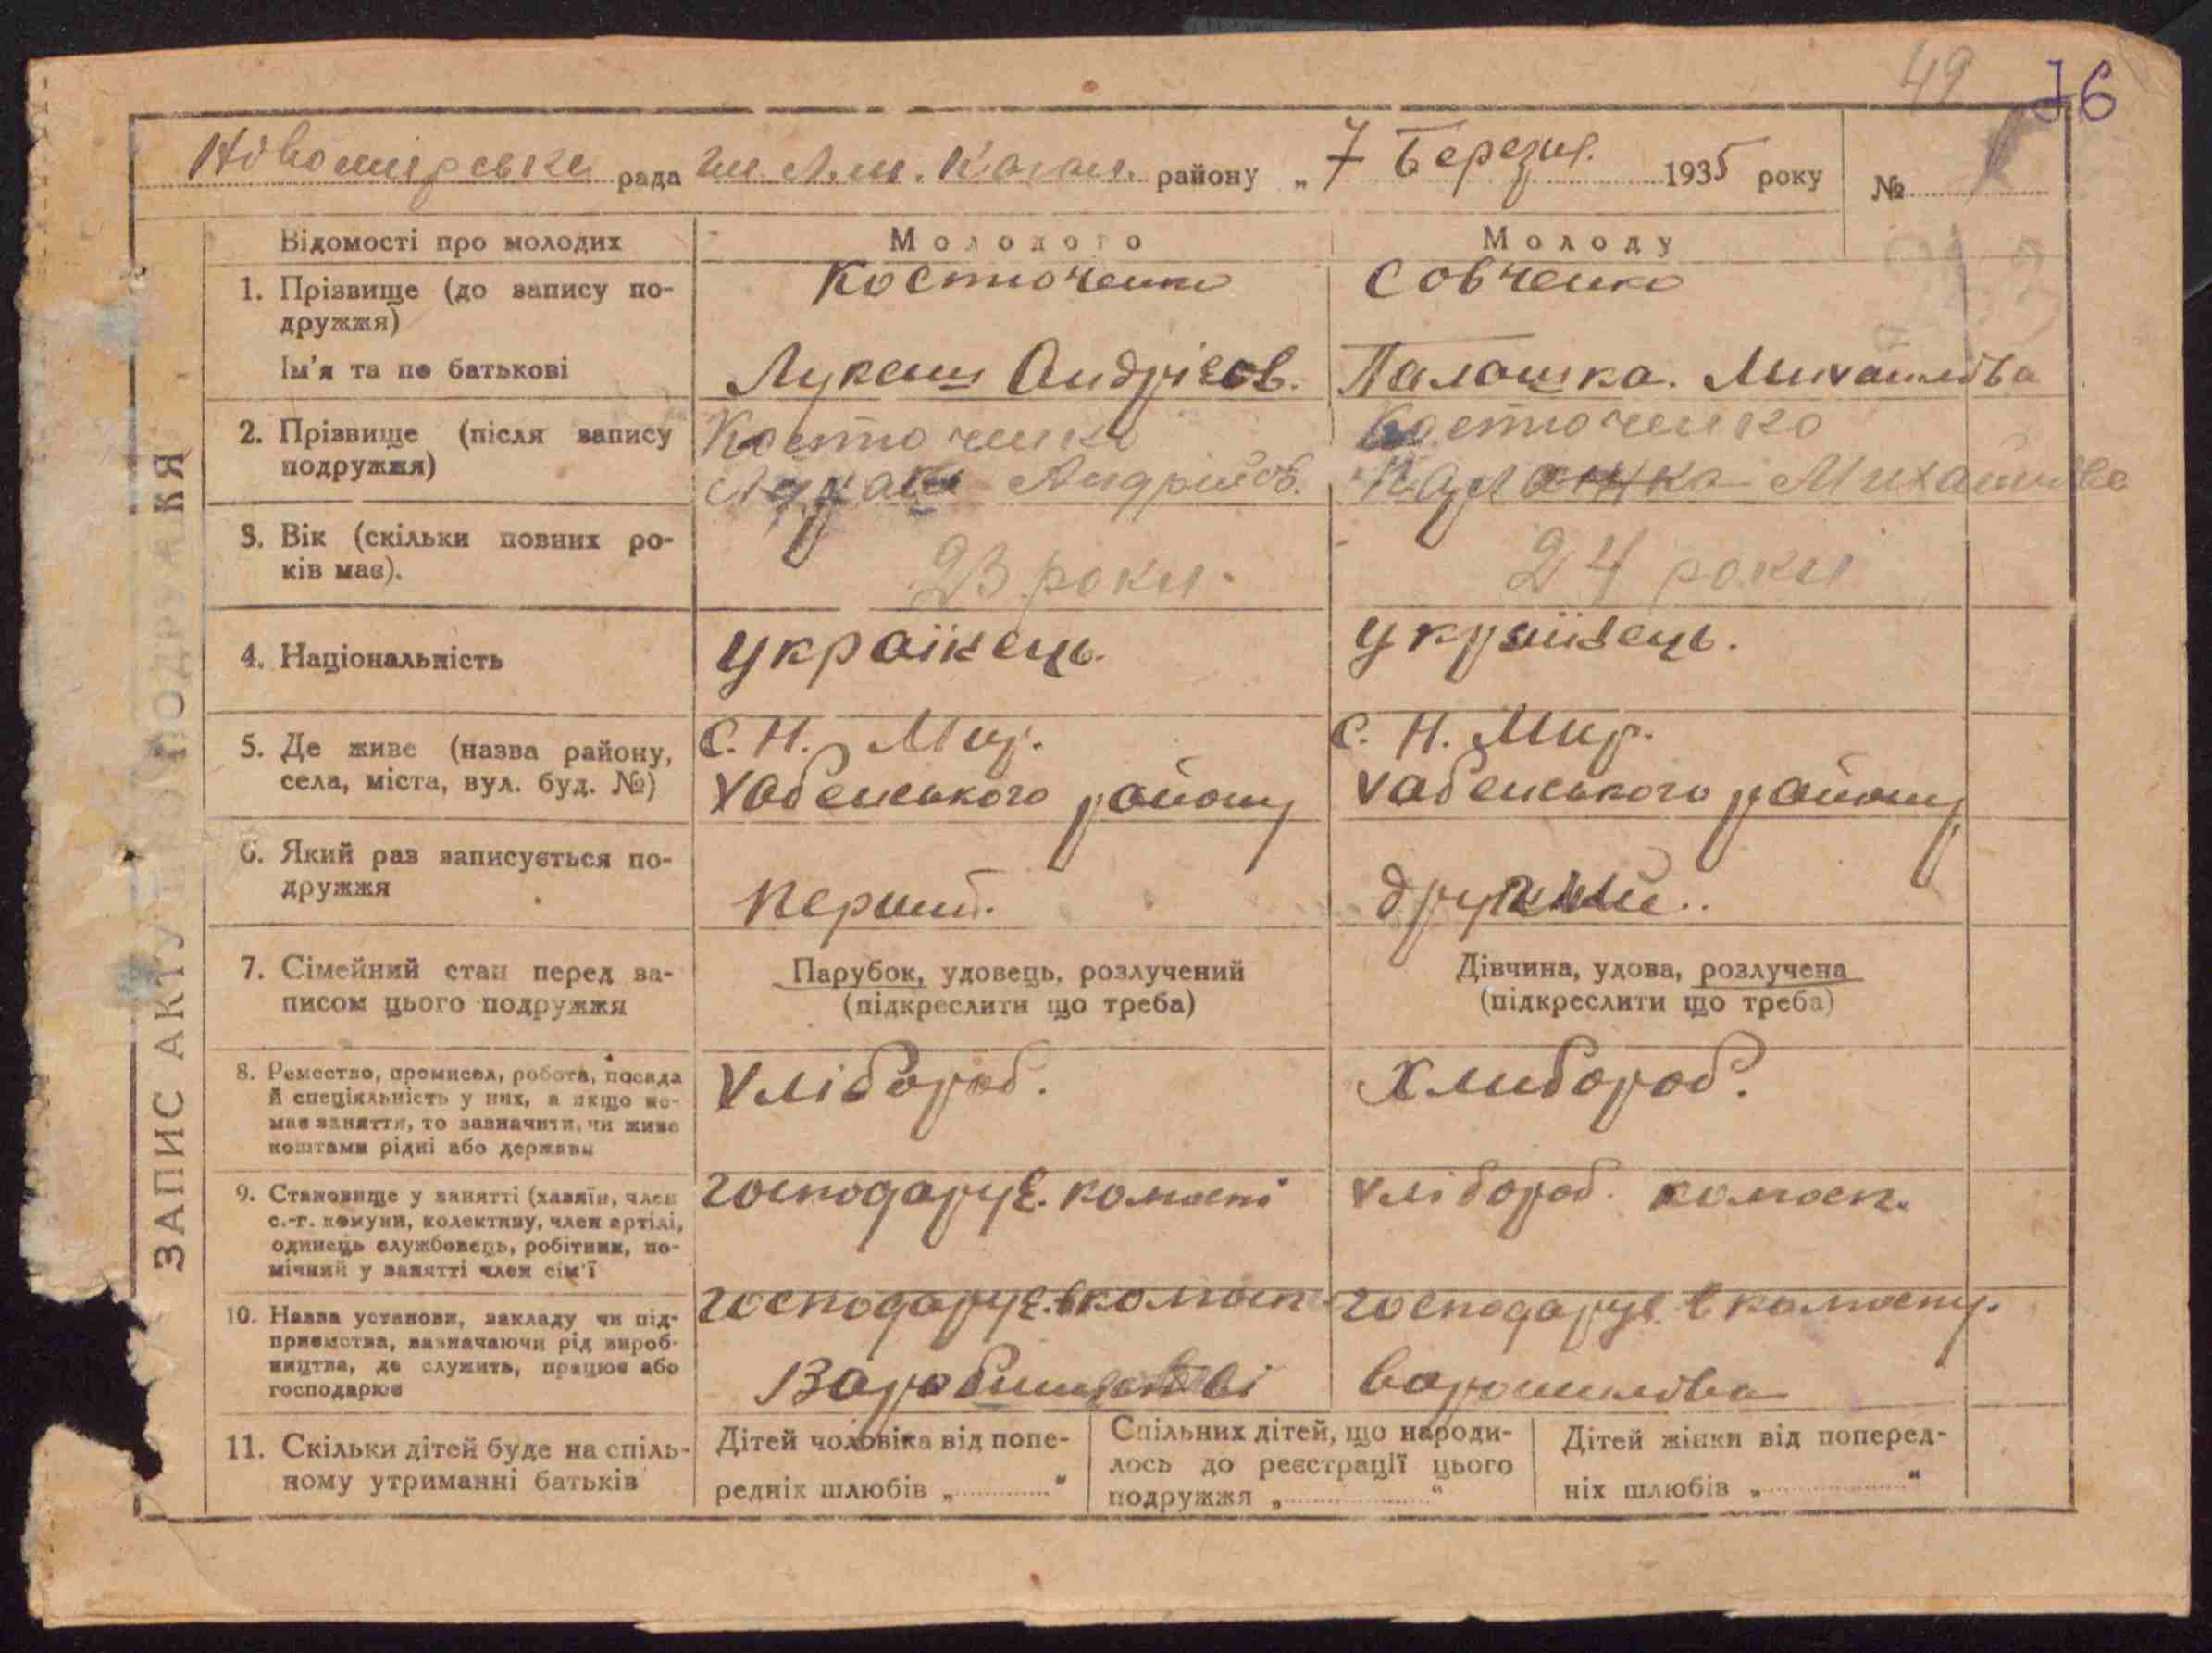 49 76
Новомирська рада ім. Л.М. Каган. району „ 7 Березня 1935 року № 1
ЗАПИС АКТУ ПРО ПОДРУЖЖЯ
Відомості про молодих Молодого Молоду
1. Прізвище (до запису по-
дружжя) Костюченко Совченко
Ім'я та по батькові Лукаш Андрієов. Палашка. Михаилова
2. Прізвище (після запису
подружжя) Костюченко Костюченко
Лукаш Андрійов. Палашка Михайлова
3. Вік (скільки повних ро-
ків має). 23 роки. 24 роки
4. Національність українець. українець.
5. Де живе (назва району,
села, міста, вул. буд. №) с. Н. Мир. с. Н. Мир.
Хабенського району Хабенського району
6. Який раз записується по-
дружжя перший. другий..
7. Сімейний стан перед за-
писом цього подружжя
Парубок, удовець, розлучений
(підкреслити що треба)
Дівчина, удова, розлучена
(підкреслити що треба)
8. Ремество, промисел, робота, посада
й спеціяльність у них, а якщо не-
має заняття, то зазначити, чи живе
коштами рідні або держави
Хлібороб. Хлибороб.
9. Становище у занятті (хазяїн, член
с.-г. комуни, колективу, член артілі,
одинець службовець, робітник, по-
мічний у занятті член сім'ї
господарує. колгоспі хлібороб. колгосп.
10. Назва установи, закладу чи під-
приємства, зазначаючи рід вироб-
ництва, де служить, працює або
господарює
господарує. в колгосп господарує в колгоспу.
ворошилова
11. Скільки дітей буде на спіль-
ному утриманні батьків
Дітей чоловіка від попе-
редніх шлюбів „ “
Спільних дітей, що народи-
лось до реєстрації цього
подружжя „ “
Дітей жінки від поперед-
ніх шлюбів „ “